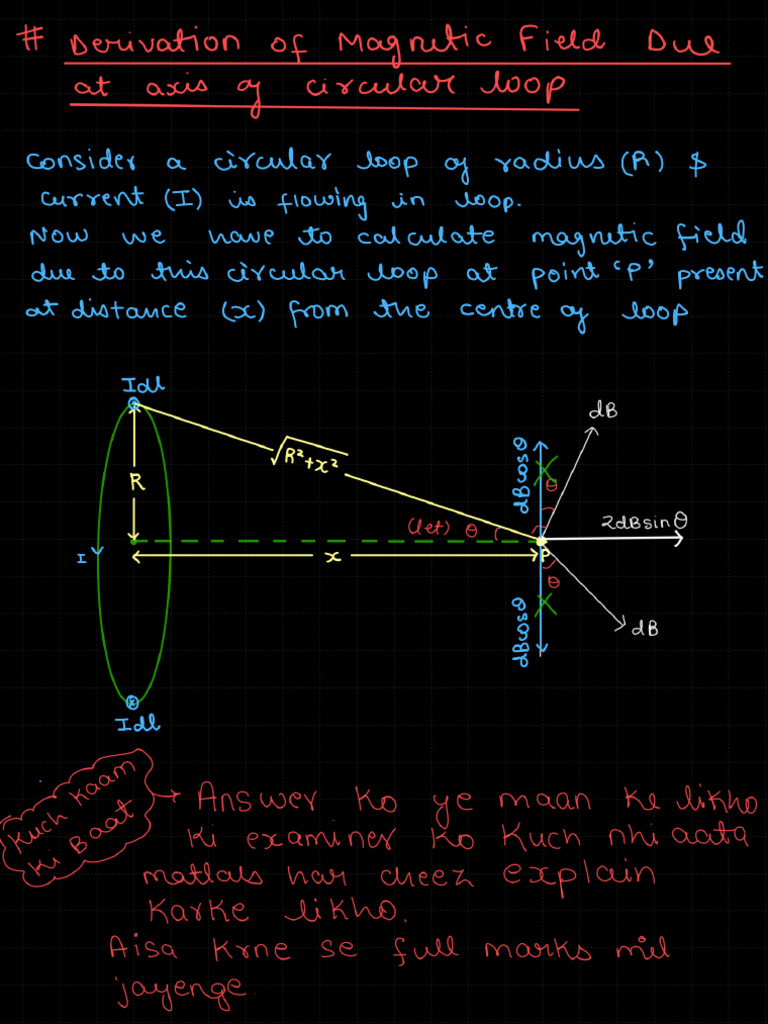 # Derivation of Magnetic Field Due
at axis of circular loop
Consider a circular loop of radius (R) &
current (I) is flowing in loop.
Now we have to calculate magnetic field
due to this circular loop at point 'P' present
at distance (x) from the centre of loop
Idl
dB
√R²+x²
dBcosθ
R
θ
(let) θ
2dBsinθ
I
x
P
θ
dBcosθ
dB
Idl
Kuch Kaam
Ki Baat
→ Answer Ko ye maan Ke likho
Ki examiner Ko Kuch nhi aata
matlab har cheez explain
Karke likho.
Aisa Krne se full marks mil
jayenge.